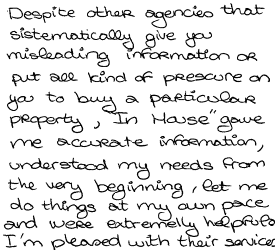 Despite other agencies that
sistematically give you
misleading information or
put all kind of pressure on
you to buy a particular
property, "In House" gave
me accurate information,
understood my needs from
the very beginning, let me
do things at my own pace
and were extremelly helpfull.
I'm pleased with their services